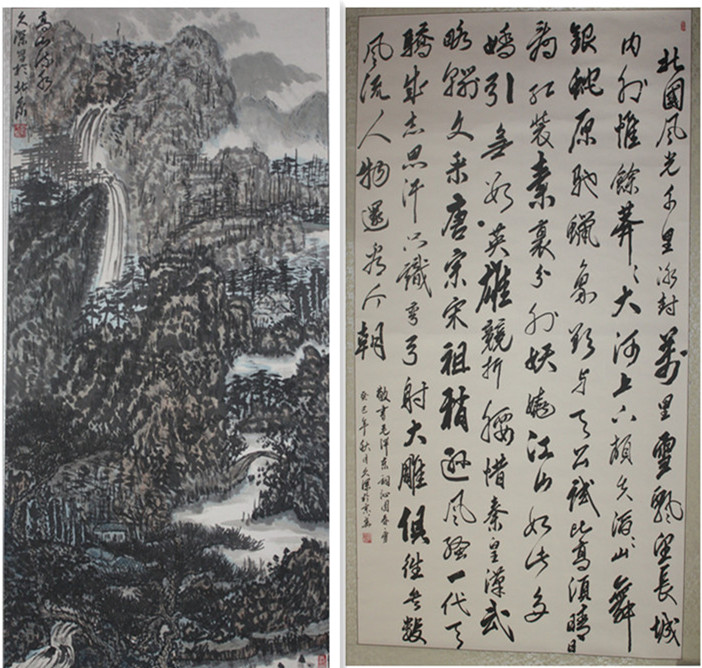 高山流水
久深写於北京
北國風光千里冰封萬里雪飄望長城
内外惟餘莽〻大河上下頓失滔〻山舞
銀蛇原馳蠟象欲與天公試比高須晴日
看紅裝素裹分外妖嬈江山如此多
嬌引無數英雄競折腰惜秦皇漢武
略輸文采唐宗宋祖稍遜風騷一代天
驕成吉思汗只識彎弓射大雕俱往矣數
風流人物還看今朝
敬書毛澤東詞沁園春雪
癸巳年秋月久深於京